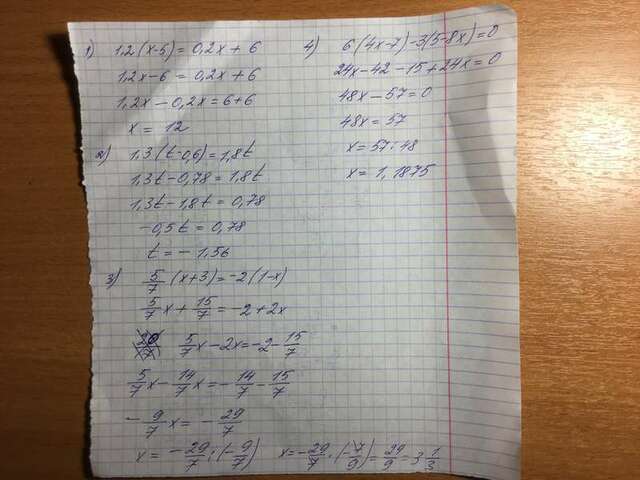 1) 1,2(x-5)=0,2x+6
1,2x-6=0,2x+6
1,2x-0,2x=6+6
x= 12
2) 1,3(t-0,6)=1,8t
1,3t-0,78=1,8t
1,3t-1,8t=0,78
-0,5t=0,78
t=-1,56
3) 5/7 (x+3)=-2(1-x)
5/7 x+ 15/7 =-2+2x
5/7 x-2x=-2- 15/7
5/7 x- 14/7 x=- 14/7 - 15/7
- 9/7 x= - 29/7
x= - 29/7 :(- 9/7) x=- 29/7 ·(- 7/9)= 29/9 =3 1/3
4) 6(4x-7)-3(5-8x)=0
24x-42-15+24x=0
48x-57=0
48x=57
x=57:48
x=1,1875